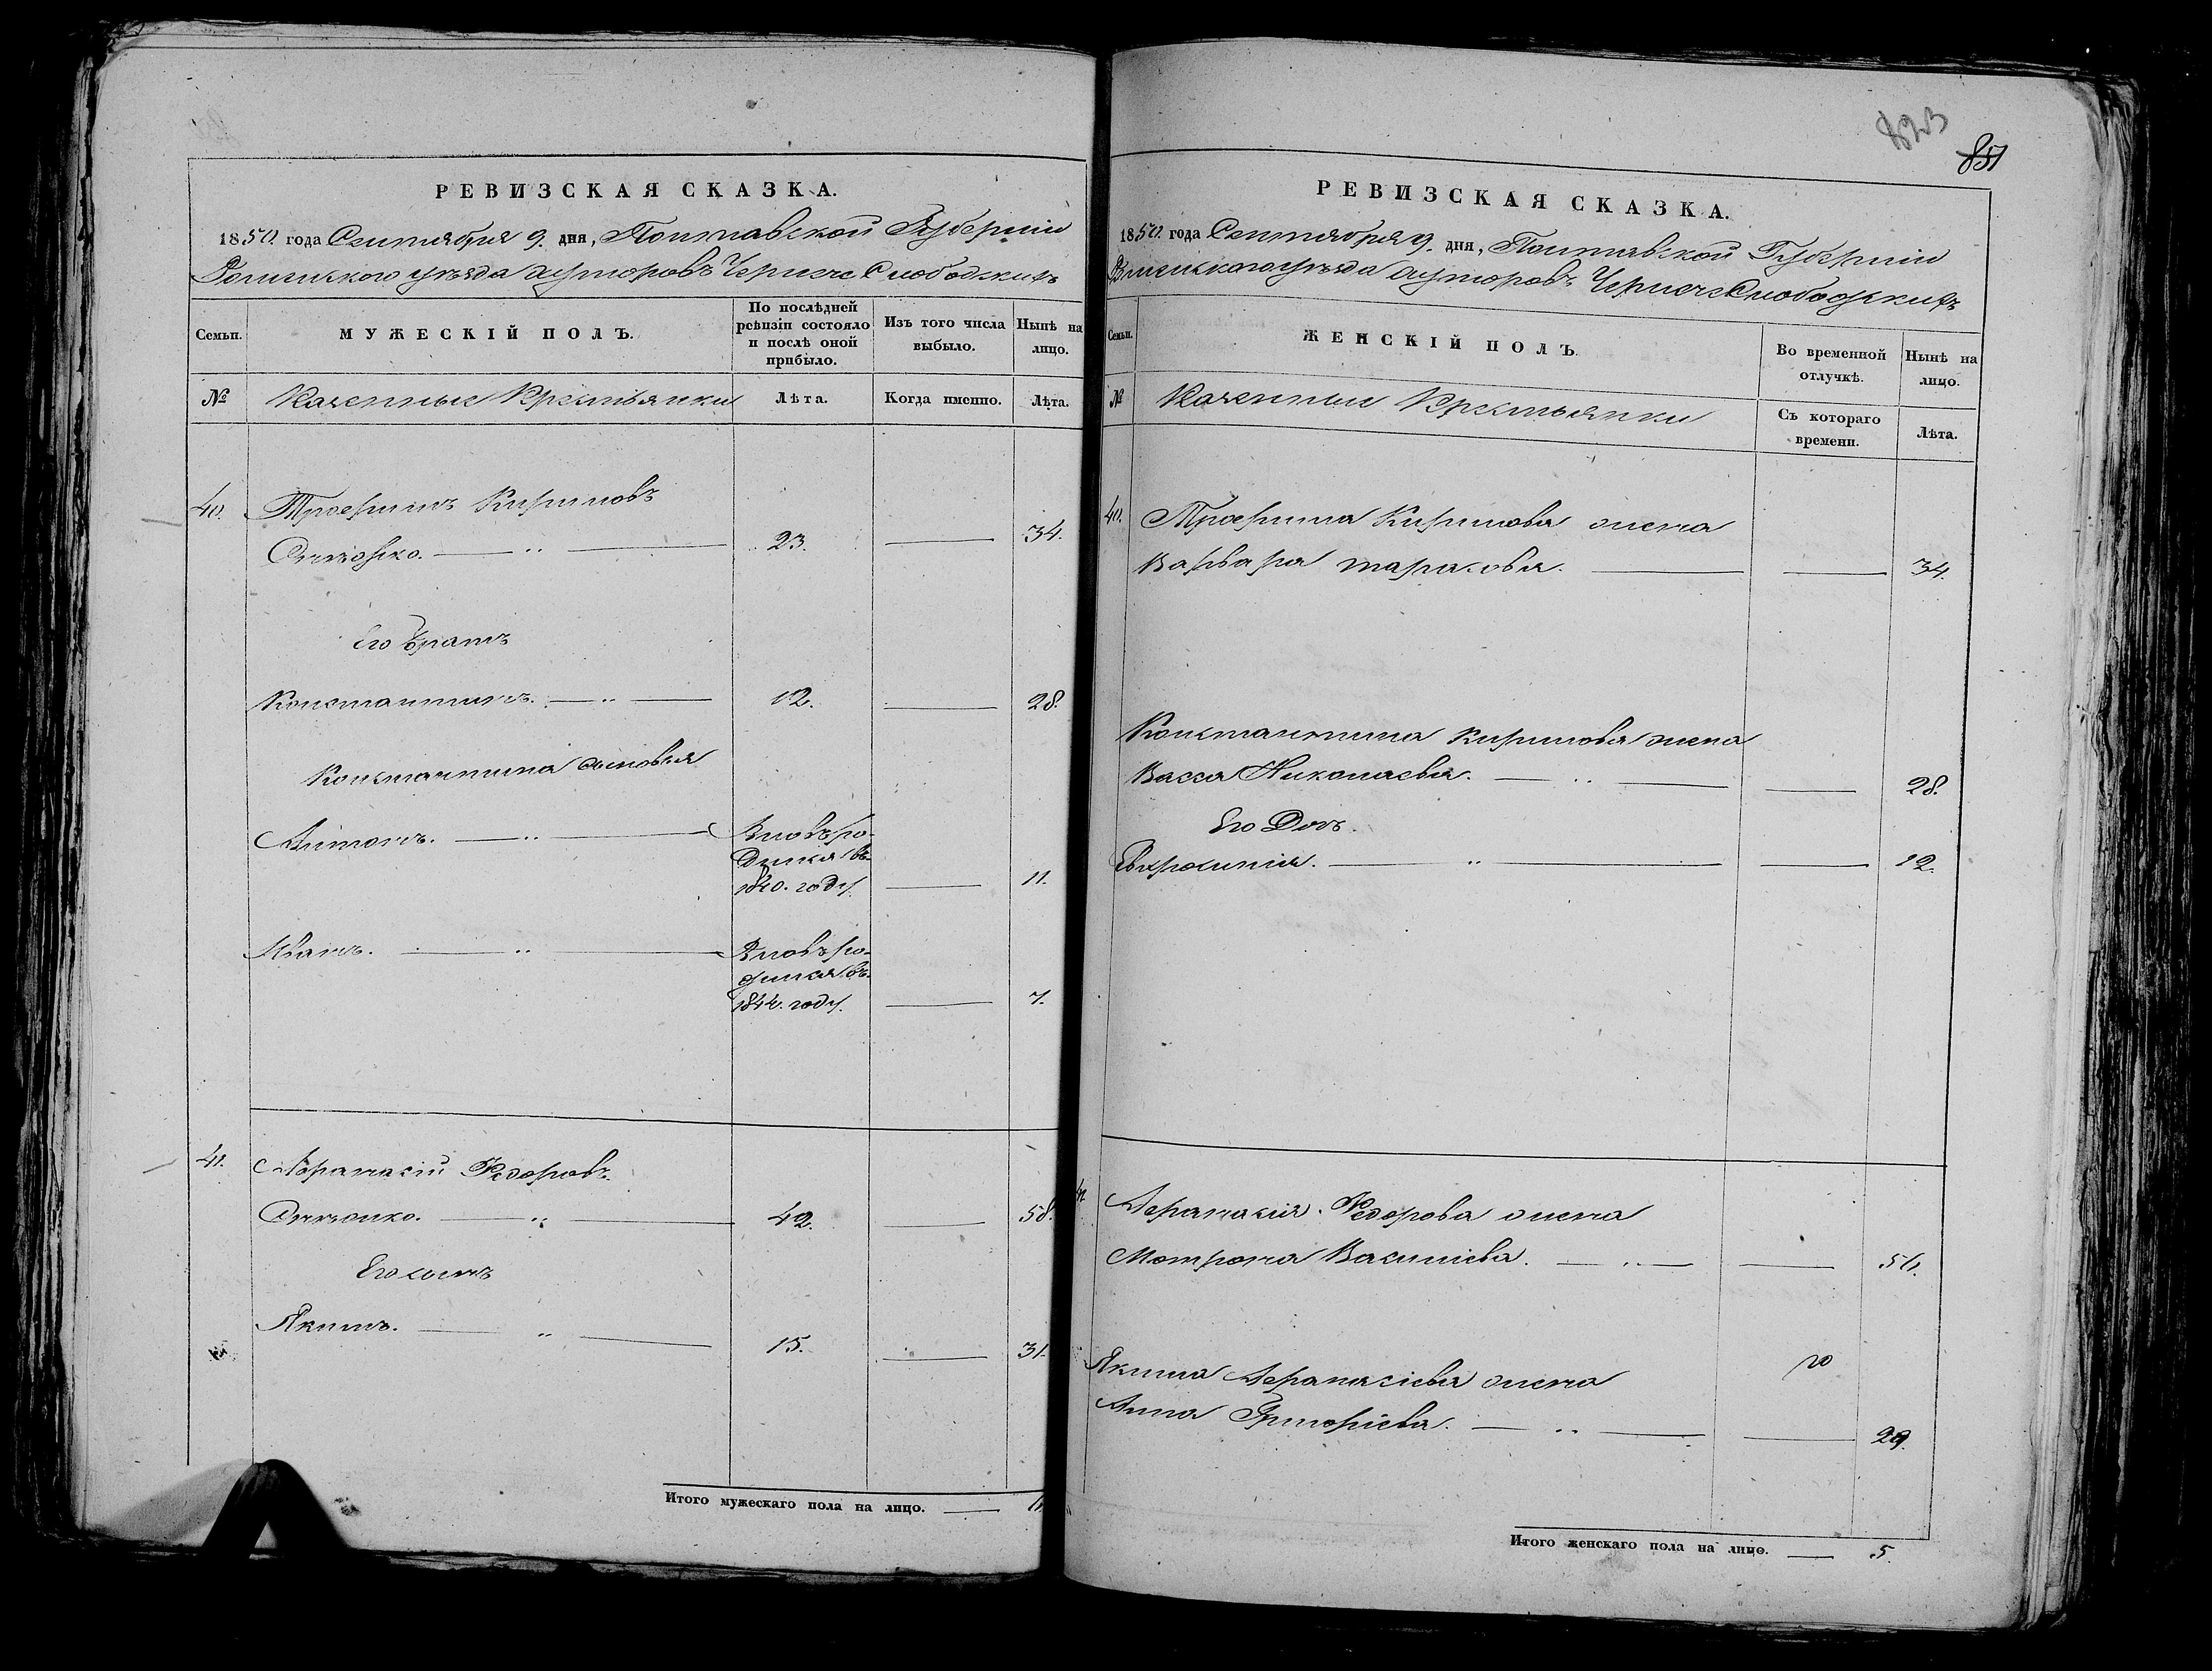 823
851
РЕВИЗСКАЯ СКАЗКА.
1850. года Сентября 9. дня, Полтавской Губерніи
Роменского уезда хуторовъ Чернече Слободскихъ
Семьи.
МУЖЕСКІЙ ПОЛЪ.
По послѣдней ревизіи состояло и послѣ оной прибыло.
Изъ того числа выбыло.
Нынѣ на лицо.
№
Казенные Крестьянки
Лѣта.
Когда именно.
Лѣта.
40. Трофимъ Кириловъ
23. 34.
Его братъ
Константинъ. 12. 28.
Константина сыновья
Антонъ. Вновь ро-
дился въ
1840. году. 11.
Иванъ. Вновь ро-
дился въ
1844. году. 7.
41. Афанасій Федоровъ.
42. 58.
Его сынъ
Якимъ. 15. 31.
Итого мужескаго пола на лицо.
РЕВИЗСКАЯ СКАЗКА.
1850. года Сентября 9. дня, Полтавской Губерніи
Роменского уезда хуторовъ Чернече Слободскихъ
Семьи.
ЖЕНСКІЙ ПОЛЪ.
Во временной отлучкѣ.
Нынѣ на лицо.
№
Казенныи Крестьянки
Съ котораго времени.
Лѣта.
40. Трофима Кирилова жена
Варвара тарасова. 34.
Константина Кирилова жена
Васса Николаева. 28.
Его Дочь.
Евфросинія. 12.
41. Афанасія Федорова жена
Мотрона Василіева. 56.
Якима Афанасіева жена
Анна Григоріева. 29.
Итого женскаго пола на лицо. 5.